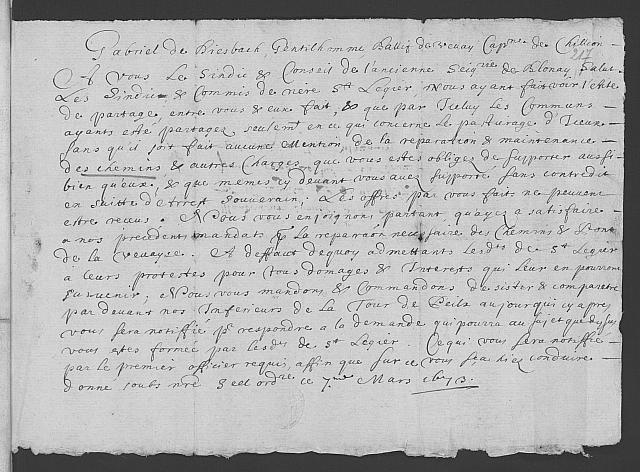 Gabriel de Diesbach, Gentilhomme Ballif de Vevay Capne. de Chillion.
217
A vous Le Sindic & Conseil de l'ancienne Seigrie de Blonay, Salut
Les Sindic & Commis de nre. St Legier, Nous ayant fait voir l'Acte
de partage, entre vous & eux fait, & que par Iceluy Les Communs
ayants esté partagés seulemt. en ce qui concerne Le pasturage d'Iceux
sans qu'il soit fait aucune Mention, de la reparation & maintenance
des chemins & autres Charges, que vous estes obligés de supporter aussi
bien qu'eux, & que mémes cy devant vous avez supporté sans contredit
en suitte d'Arrest Souverain; Les offres par vous faits ne peuvent
estre receus. Nous vous enjoignons partant, qu'ayez à satisfaire
a nos precedents mandats pr. La reparaon necessaire des Chemins & Pont
de la Vevayse. A deffaut dequoy admettants Lesds. de St Legier
à leurs protestes pour tous domages & Interests qui leur en pourroyent
survenir; Nous vous mandons & Commandons d'esister & comparestre
par devant nos Inferieurs de La Tour de Peilz au jour qui cy apres
vous sera notiffié pr. respondre a la demande qui pourra au sujet que dessus
vous estre formée par lesds. de St Legier. Ce qui vous sera notiffié
par le premier officier requis, affin que sur ce vous sachiez conduire
donné soubs nre Seel ordre. ce 7me. Mars 1673.